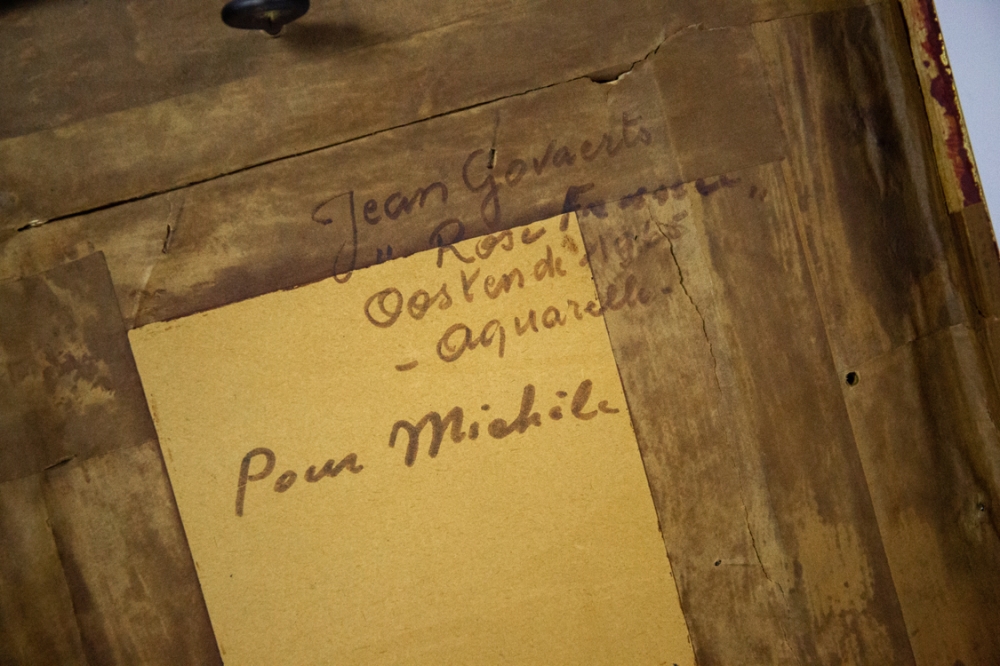 Jean Govaerts
" Rose Femme "
Oostende
- Aquarelle -
Pour Michèle